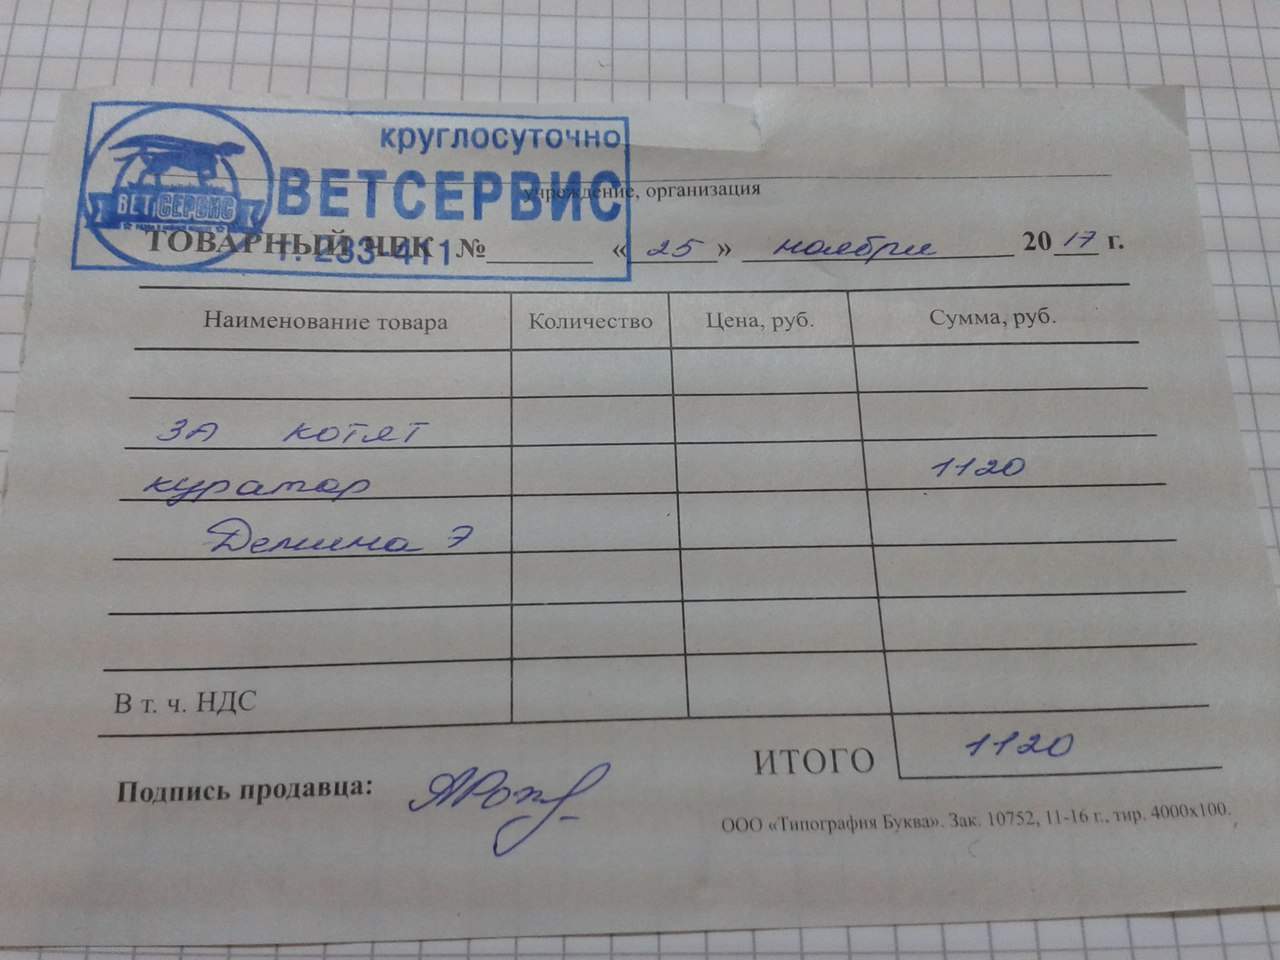 круглосуточно
ВЕТСЕРВИС
ВЕТСЕРВИС
учреждение, организация
т. 233-411
ТОВАРНЫЙ ЧЕК № « 25 » ноября 20 17 г.
Наименование товара Количество Цена, руб. Сумма, руб.
ЗА котят
куратор 1120
Демина Э
В т. ч. НДС
ИТОГО 1120
Подпись продавца:
ООО «Типография Буква». Зак. 10752, 11-16 г., тир. 4000х100.